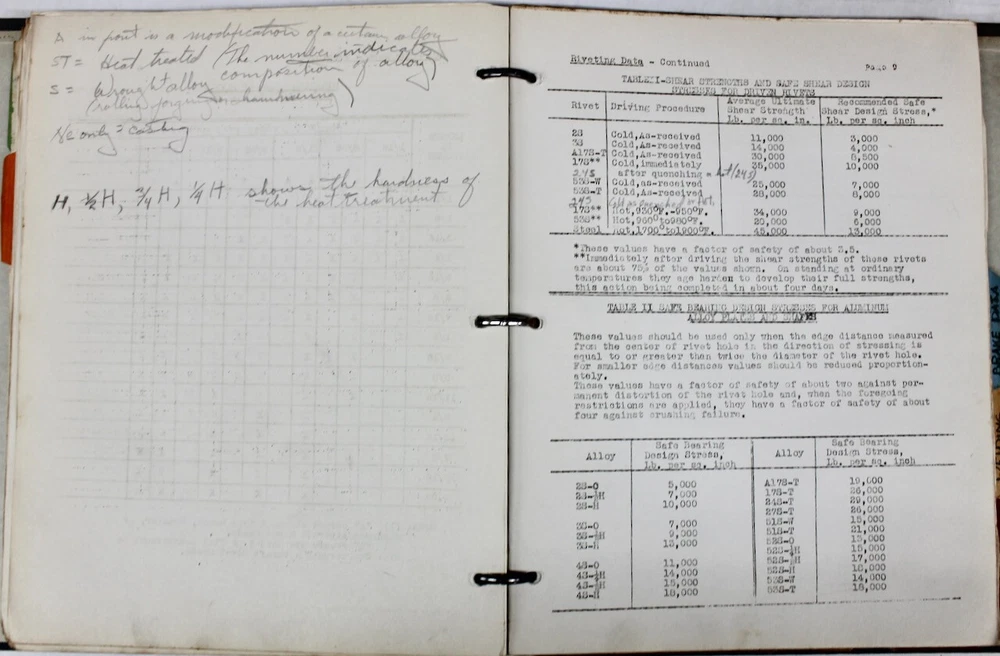 A in front is a modification of a certain alloy
ST = Heat treated (the number indicates
composition of alloy)
S = Wrought alloy
(rolling forging or hammering)
No only = casting
H, ½H, ¾H, ¼H shows the hardness of
the heat treatment
Riveting Data - Continued
Page 9
TABLE I-SHEAR STRENGTHS AND SAFE SHEAR DESIGN
STRESSES FOR DRIVEN RIVETS
Rivet Driving Procedure Average Ultimate Shear Strength Lb. per sq. in. Recommended Safe Shear Design Stress,* Lb. per sq. inch
2S Cold,As-received 11,000 3,000
3S Cold,As-received 14,000 4,000
A17S-T Cold,As-received 30,000 8,500
17S** Cold,immediately 35,000 10,000
24S after quenching = hot (24S)
53S-W Cold,as-received 25,000 7,000
53S-T Cold,As-received 28,000 8,000
24S
17S** Hot,930°F.-950°F. 34,000 9,000
53S** Hot,960°to980°F. 20,000 6,000
Steel Hot,1700°to1900°F. 45,000 13,000
*These values have a factor of safety of about 3.5.
**Immediately after driving the shear strengths of these rivets
are about 75% of the values shown. On standing at ordinary
temperatures they age harden to develop their full strengths,
this action being completed in about four days.
TABLE II SAFE BEARING DESIGN STRESSES FOR ALUMINUM
ALLOY PLATES AND SHAPES
These values should be used only when the edge distance measured
from the center of rivet hole in the direction of stressing is
equal to or greater than twice the diameter of the rivet hole.
For smaller edge distances values should be reduced proportion-
ately.
These values have a factor of safety of about two against per-
manent distortion of the rivet hole and, when the foregoing
restrictions are applied, they have a factor of safety of about
four against crushing failure.
Alloy Safe Bearing Design Stress, Lb. per sq. inch Alloy Safe Bearing Design Stress, Lb. per sq. inch
2S-O 5,000 A17S-T 19,000
2S-½H 7,000 17S-T 26,000
2S-H 10,000 24S-T 29,000
27S-T 26,000
3S-O 7,000 51S-W 15,000
3S-½H 9,000 51S-T 21,000
3S-H 13,000 52S-O 13,000
52S-½H 15,000
4S-O 11,000 52S-½H 17,000
4S-¼H 14,000 52S-H 18,000
4S-½H 15,000 53S-W 14,000
4S-H 18,000 53S-T 18,000